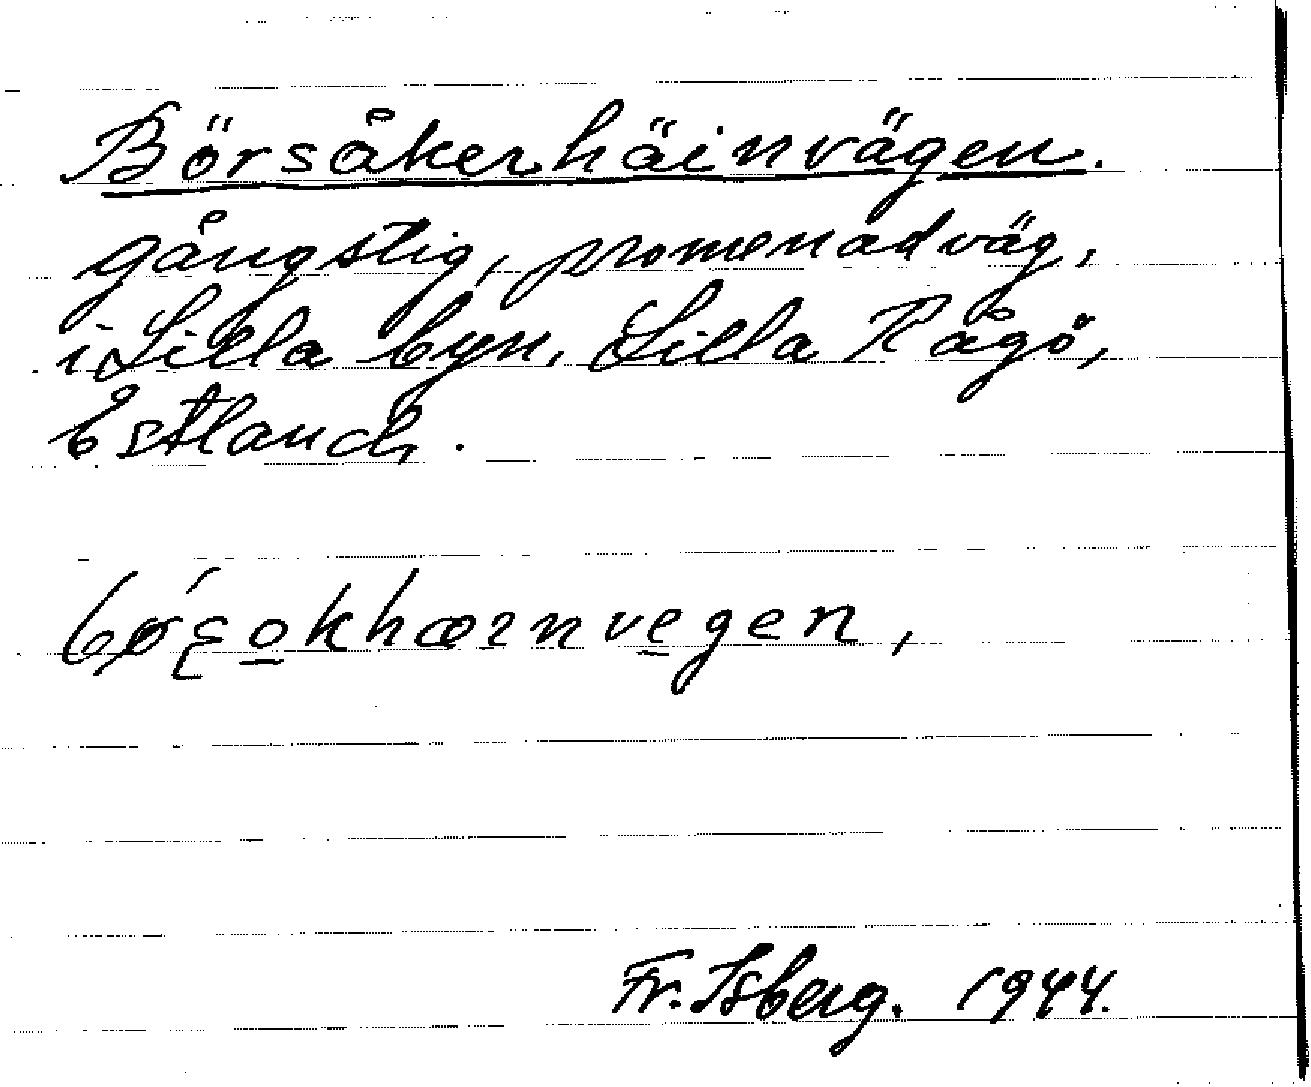 Börsåkerhäinvägen.
gångstig, promenadväg,
i Lilla byn, Lilla Rågö,
Estland.
Fr. Isberg. 1944.